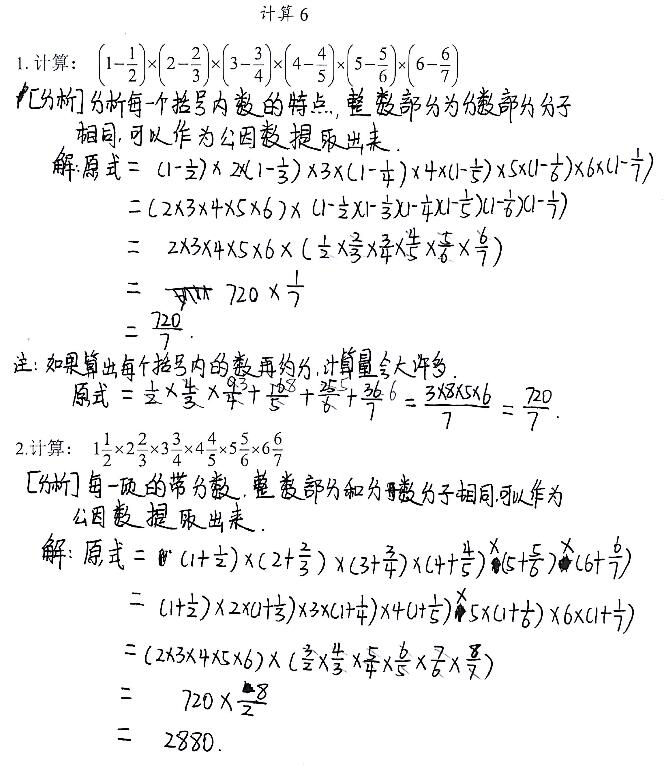 计算 6
1. 计算: (1-1/2)×(2-2/3)×(3-3/4)×(4-4/5)×(5-5/6)×(6-6/7)
[分析] 分析每一个括号内数的特点, 整数部分为分数部分分子
相同, 可以作为公因数提取出来.
解:原式 = (1-1/2)×2×(1-1/3)×3×(1-1/4)×4×(1-1/5)×5×(1-1/6)×6×(1-1/7)
=(2×3×4×5×6)×(1-1/2)(1-1/3)(1-1/4)(1-1/5)(1-1/6)(1-1/7)
= 2×3×4×5×6×(1/2×2/3×3/4×4/5×5/6×6/7)
= 720×1/7
= 720/7.
注: 如果算出每个括号内的数再约分, 计算量会大许多.
原式 = 1/2×4/3×9/4+16/5+25/6+36/7 = 3×8×5×6/7 = 720/7.
2.计算: 1 1/2×2 2/3×3 3/4×4 4/5×5 5/6×6 6/7
[分析] 每一项的带分数, 整数部分和分数分子相同,可以作为
公因数提取出来.
解: 原式 = (1+1/2)×(2+2/3)×(3+3/4)×(4+4/5)×(5+5/6)×(6+6/7)
= (1+1/2)×2×(1+1/3)×3×(1+1/4)×4(1+1/5)×5×(1+1/6)×6×(1+1/7)
=(2×3×4×5×6)×(3/2×4/3×5/4×6/5×7/6×8/7)
= 720×8/2
= 2880.